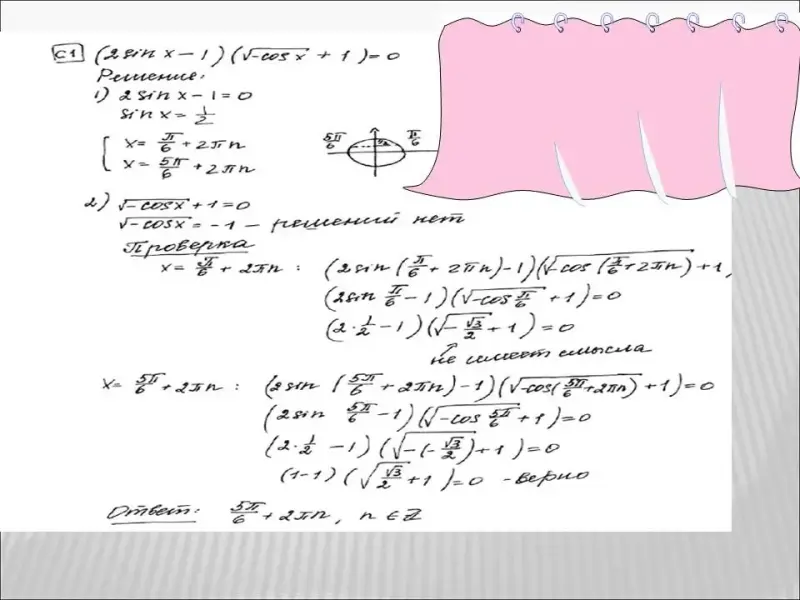 С1 (2 sin x − 1)(√−cos x + 1) = 0
Решение:
1) 2 sin x − 1 = 0
sin x = 1/2
[ x = π/6 + 2πn
x = 5π/6 + 2πn
5π/6 π/6
2) √−cos x + 1 = 0
√−cos x = −1 − решений нет
Проверка
x = π/6 + 2πn : (2 sin (π/6 + 2πn) − 1)(√−cos (π/6 + 2πn) + 1,
(2 sin π/6 − 1)(√−cos π/6 + 1) = 0
(2 · 1/2 − 1)(√−√3/2 + 1) = 0
не имеет смысла
x = 5π/6 + 2πn : (2 sin (5π/6 + 2πn) − 1)(√−cos(5π/6 + 2πn) + 1) = 0
(2 sin 5π/6 − 1)(√−cos 5π/6 + 1) = 0
(2 · 1/2 − 1)(√−(−√3/2) + 1) = 0
(1 − 1)(√√3/2 + 1) = 0 − верно
Ответ: 5π/6 + 2πn, n ∈ Z